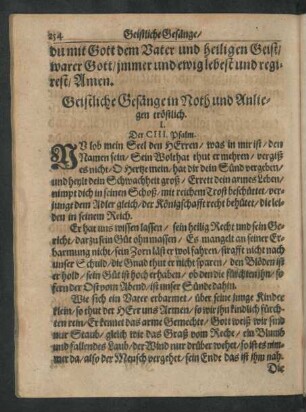 234 Geistliche Gesänge/
du mit Gott dem Vater und heiligen Geist/
warer Gott/ immer und ewig lebest und regi-
rest/ Amen.
Geistliche Gesänge in Noth und Anlie-
gen tröstlich.
I.
Der CIII. Psalm.
NU lob mein Seel den HErren/ was in mir ist/ den
Namen sein/ Sein Wolthat thut er mehren/ vergiß
es nicht/ O Hertze mein/ hat dir dein Sünd vergeben/
und heylt dein Schwachheit groß/ Errett dein armes Leben/
nimpt dich in seinen Schoß/ mit reichem Trost beschüttet/ ver-
jüngt dem Adler gleich/ der König schafft recht behütet/ die lei-
den in seinem Reich.
Er hat uns wissen lassen/ sein heilig Recht und sein Ge-
richt/ darzu sein Güt ohn massen/ Es mangelt an seiner Er-
barmung nicht/ sein Zorn läst er wol fahren/ strafft nicht nach
unser Schuld/ die Gnad thut er nicht sparen/ den Blöden ist
er hold/ sein Güt ist hoch erhaben/ ob den die fürchten ihn/ so
fern der Ost vom Abend/ ist unser Sünde dahin.
Wie sich ein Vater erbarmet/ über seine junge Kinder
klein/ so thut der HErr uns Armen/ so wir ihn kindlich fürch-
ten rein/ Er kennet das arme Gemechte/ Gott weiß wir sind
nur Staub/ gleich wie das Graß vom Recht/ ein Blum
und fallendes Laub/ der Wind nur drüber wehet/ so ist es nim-
mer da/ also der Mensch vergehet/ sein Ende das ist ihm nah.
Die